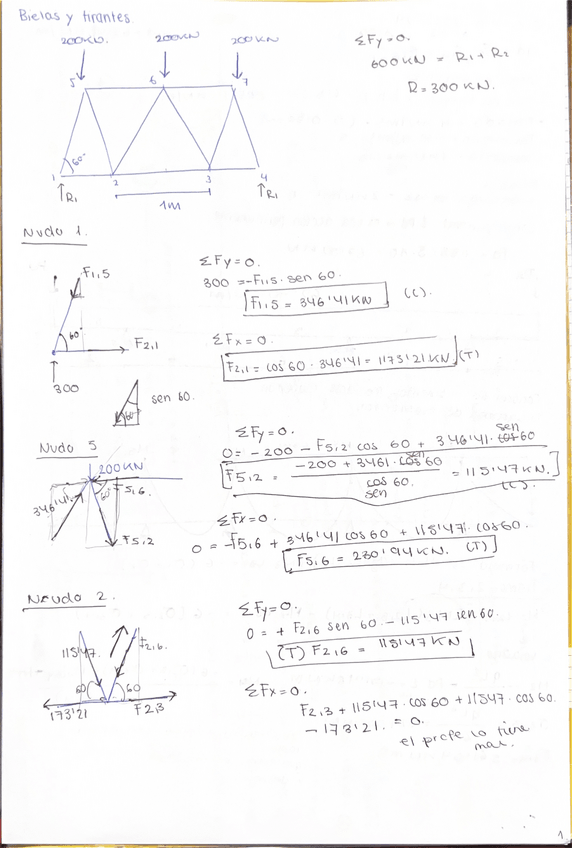 Bielas y tirantes.
200KN. 200KN 200KN
ΣFy=0.
600KN = R1 + R2
R=300KN.
5 6 7
60°
1 2 3 4
R1 R1
1m
Nudo 1.
F1,5
60°
F2,1
300
ΣFy=0.
300 =-F1,5. sen 60.
F1,5 = 346'41 KN (C).
ΣFx=0.
F2,1 = cos 60 . 346'41 = 1173'21 KN. (T)
60 sen 60.
Nudo 5
200KN
346'41
60° F5,6.
F5,2
ΣFy=0.
sen
0= -200 - F5,2 cos 60 + 346'41. cos 60
F5,2 = -200 + 3461. cos 60 / cos 60. = 115'47 KN.
sen
sen (C).
ΣFx=0.
0 = -F5,6 + 346'41 cos60 + 115'47. cos60.
F5,6 = 230'94KN. (T)
Nuudo 2.
115'47. F2,6.
60 60
173'21 F2,3
ΣFy=0.
0 = + F2,6 sen 60. - 115'47 sen 60.
(T) F2,6 = 115'47 KN
ΣFx=0.
F2,3 + 115'47 . cos 60 + 11547 . cos 60.
- 173'21. = 0.
el profe lo tiene
mal.
1